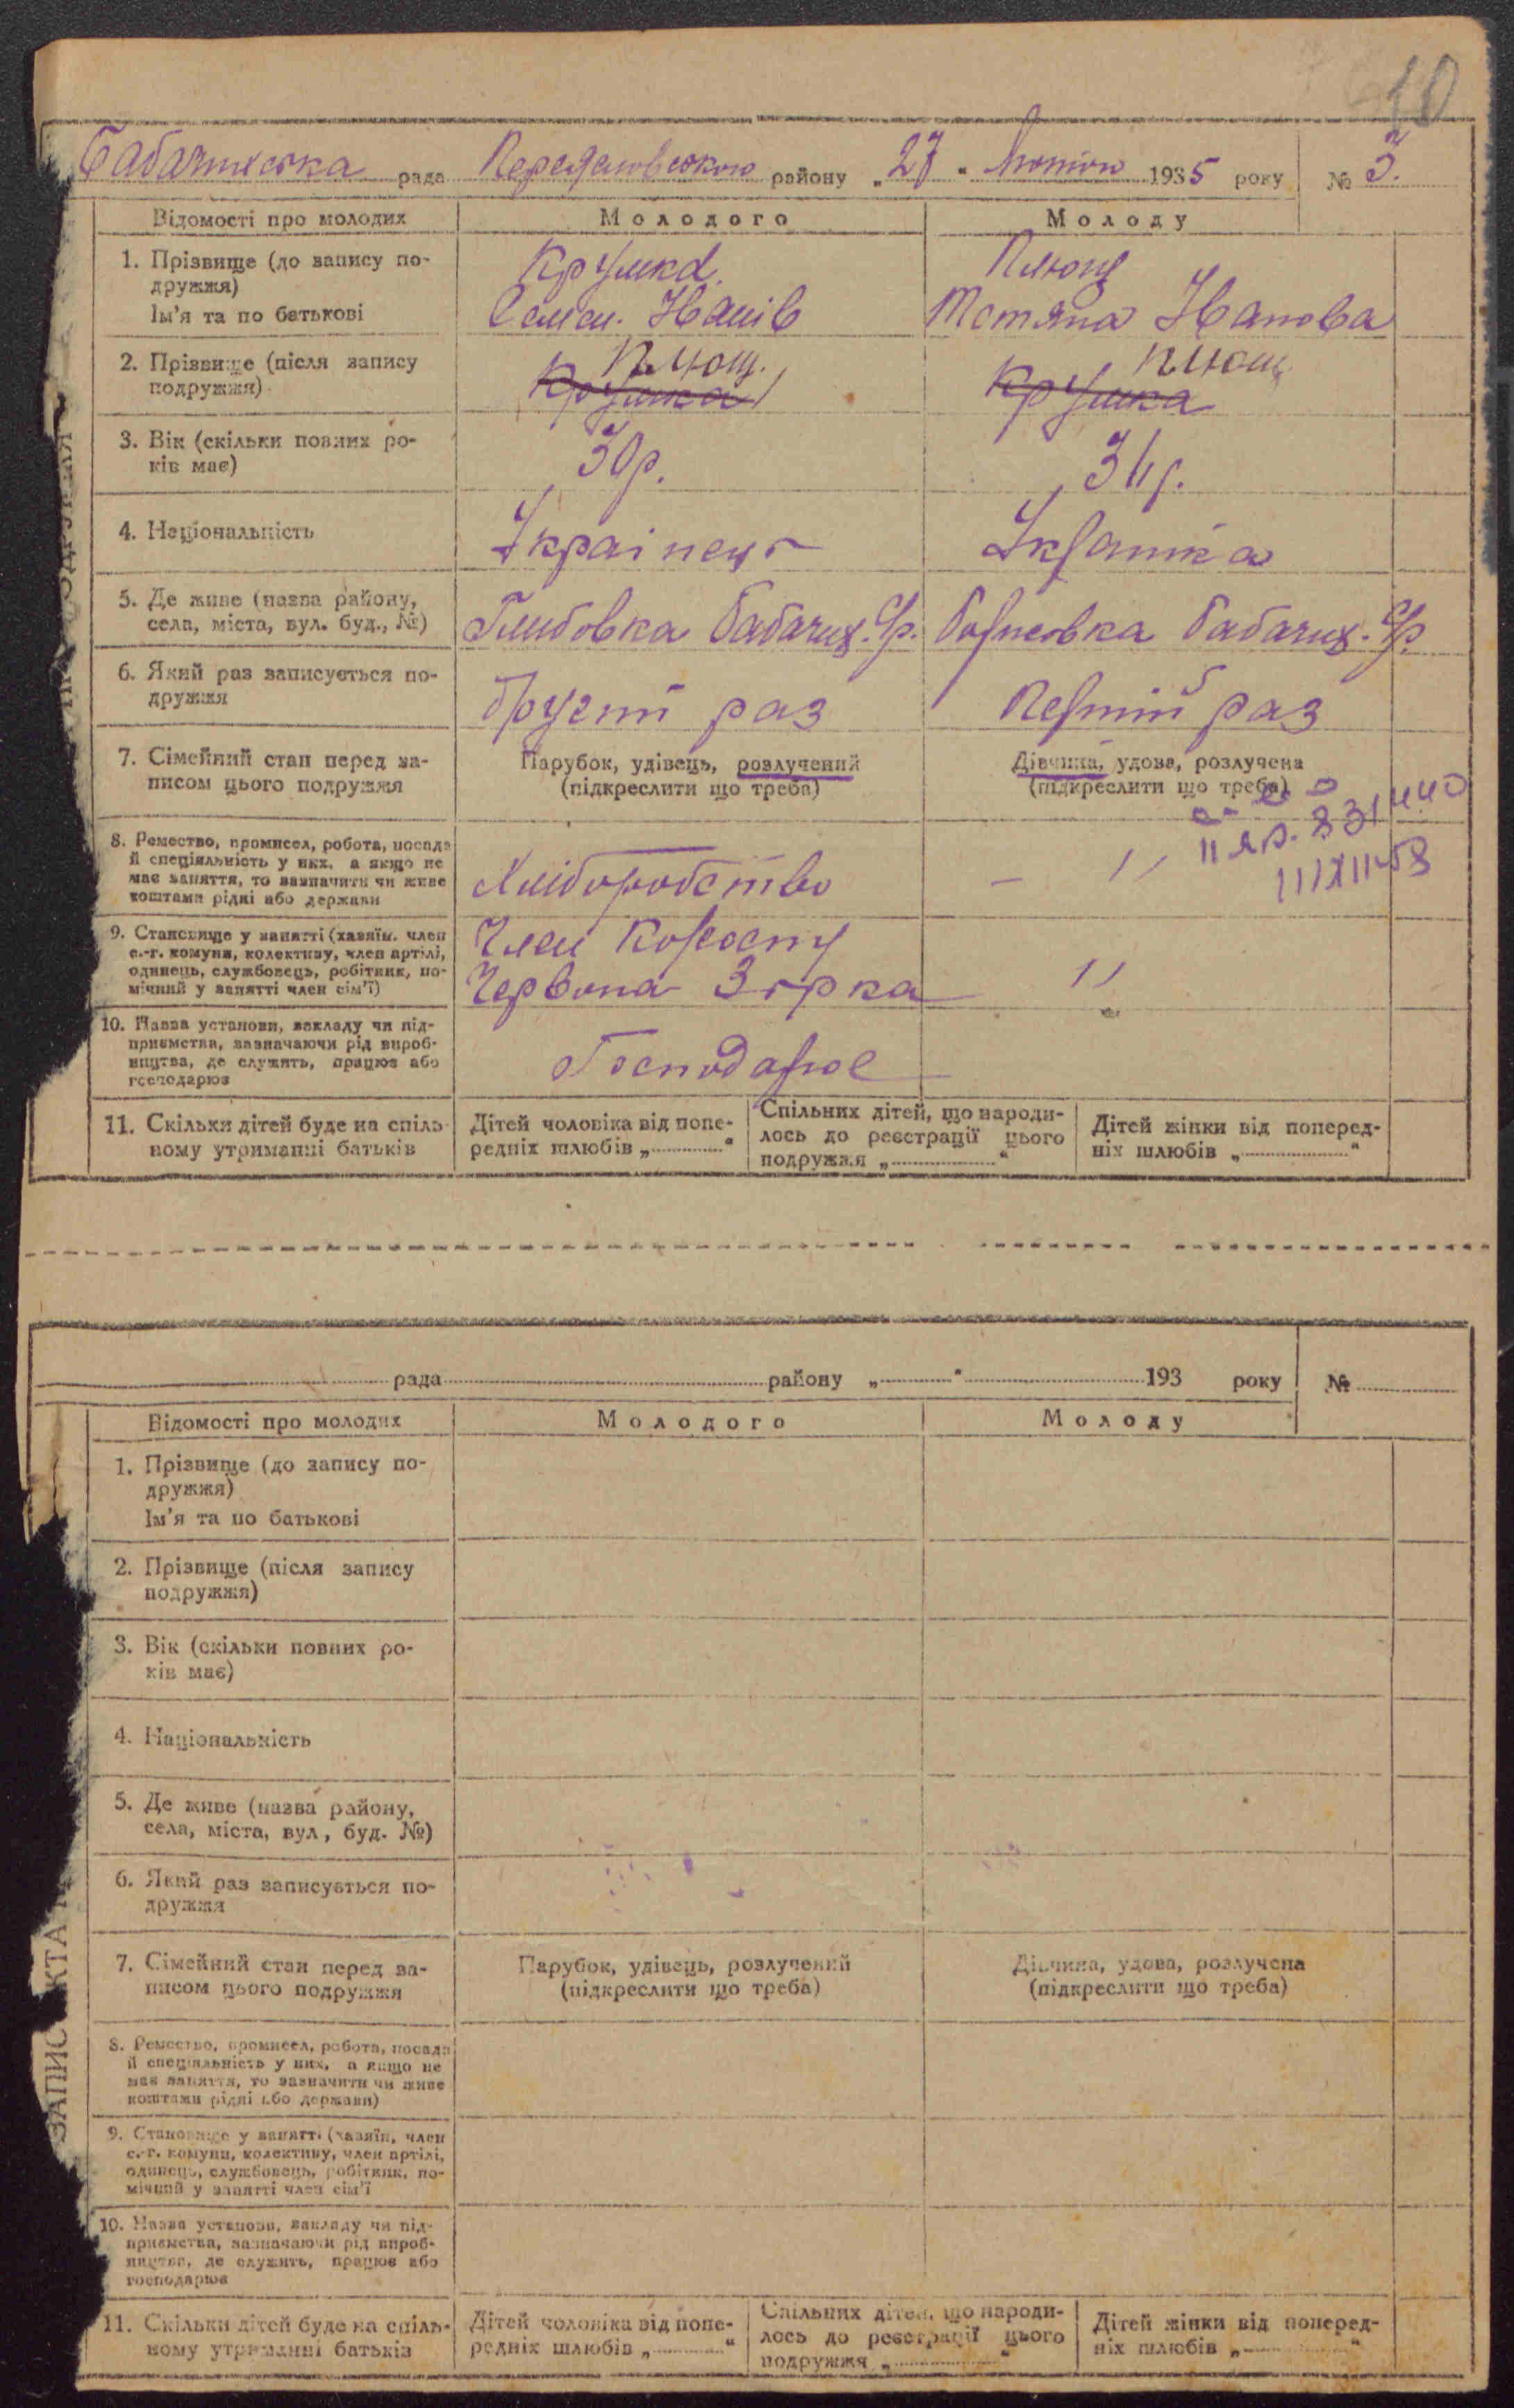 10
рада району „27“ 1935 року № 3.
Відомості про молодих Молодого Молоду
1. Прізвище (до запису по-
дружжя)
Крушка. Плющ
Ім'я та по батькові
Семен. Іванів Тетяна Іванова
2. Прізвище (після запису
подружжя)
Плющ. Плющ
Крушка Крушка
3. Вік (скільки повних ро-
ків має)
30р.
4. Національність
Українець
5. Де живе (назва району,
села, міста, вул. буд., №)
6. Який раз записується по-
дружжя
другий раз Перший раз
7. Сімейний стан перед за-
писом цього подружжя
Парубок, удівець, розлучений
(підкреслити що треба)
Дівчина, удова, розлучена
(підкреслити що треба)
8. Ремество, промисел, робота, посада
й спеціяльність у них, а якщо не
має заняття, то зазначити чи живе
коштами рідні або держави
Хліборобство
— 11
9. Становище у занятті (хазяїн, член
с.-г. комуни, колективу, член артілі,
одинець, службовець, робітник, по-
мічний у занятті член сім'ї)
Член
Червона Зірка — 11
10. Назва установи, закладу чи під-
приємства, зазначаючи рід вироб-
ництва, де служить, працює або
господарює
Господарює
11. Скільки дітей буде на спіль-
ному утриманні батьків
Дітей чоловіка від попе-
редніх шлюбів „ “
Спільних дітей, що народи-
лось до реєстрації цього
подружжя „ “
Дітей жінки від поперед-
ніх шлюбів „ “
рада району „ “ 193 року №
Відомості про молодих Молодого Молоду
1. Прізвище (до запису по-
дружжя)
Ім'я та по батькові
2. Прізвище (після запису
подружжя)
3. Вік (скільки повних ро-
ків має)
4. Національність
5. Де живе (назва району,
села, міста, вул, буд. №)
6. Який раз записується по-
дружжя
7. Сімейний стан перед за-
писом цього подружжя
Парубок, удівець, розлучений
(підкреслити що треба)
Дівчина, удова, розлучена
(підкреслити що треба)
8. Ремество, промисел, робота, посада
й спеціяльність у них, а якщо не
має заняття, то зазначити чи живе
коштами рідні або держави)
9. Становище у занятті (хазяїн, член
с.-г. комуни, колективу, член артілі,
одинець, службовець, робітник, по-
мічний у занятті член сім'ї
10. Назва установи, закладу чи під-
приємства, зазначаючи рід вироб-
ництва, де служить, працює або
господарює
11. Скільки дітей буде на спіль-
ному утриманні батьків
Дітей чоловіка від попе-
редніх шлюбів „ “
Спільних дітей, що народи-
лось до реєстрації цього
подружжя „ “
Дітей жінки від поперед-
ніх шлюбів „ “
ЗАПИС